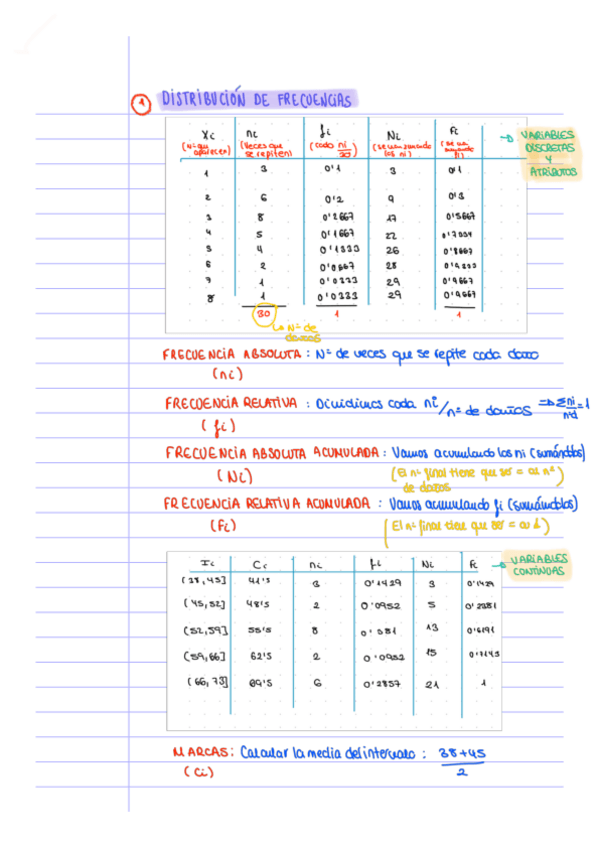 1 DISTRIBUCIÓN DE FRECUENCIAS
Xi ni fi Ni Fi → VARIABLES DISCRETAS Y ATRIBUTOS
(Veces que se repiten) (cada ni/30) (se van sumando los ni) (se van sumando fi)
1 3 0'1 3 0'1
2 6 0'2 9 0'3
3 8 0'2667 17 0'5667
4 5 0'1667 22
5 4 0'1333 26 0'8667
6 2 0'0667 28
7 1 0'0333 29 0'9667
8 1 0'0333 29 0'9667
30 1 1
↳ Nº de datos
FRECUENCIA ABSOLUTA: Nº de veces que se repite cada dato
(ni)
FRECUENCIA RELATIVA: Dividimos cada ni/nº de datos ⇒ Σ ni/nd = 1
(fi)
FRECUENCIA ABSOLUTA ACUMULADA: Vamos acumulando los ni (sumándolos)
(Ni) (El nº final tiene que ser = al nº de datos)
FRECUENCIA RELATIVA ACUMULADA: Vamos acumulando fi (sumándolos)
(Fi) (El nº final tiene que ser = al 1)
Ii Ci ni fi Ni Fi → VARIABLES CONTINUAS
[38,45] 41'5 3 0'1429 3 0'1429
(45,52] 48'5 2 0'0952 5 0'2381
(52,59] 55'5 8 0'381 13 0'6191
(59,66] 62'5 2 0'0952 15 0'7143
(66,73] 69'5 6 0'2857 21 1
MARCAS: Calcular la media del intervalo: 38+45/2
(Ci)